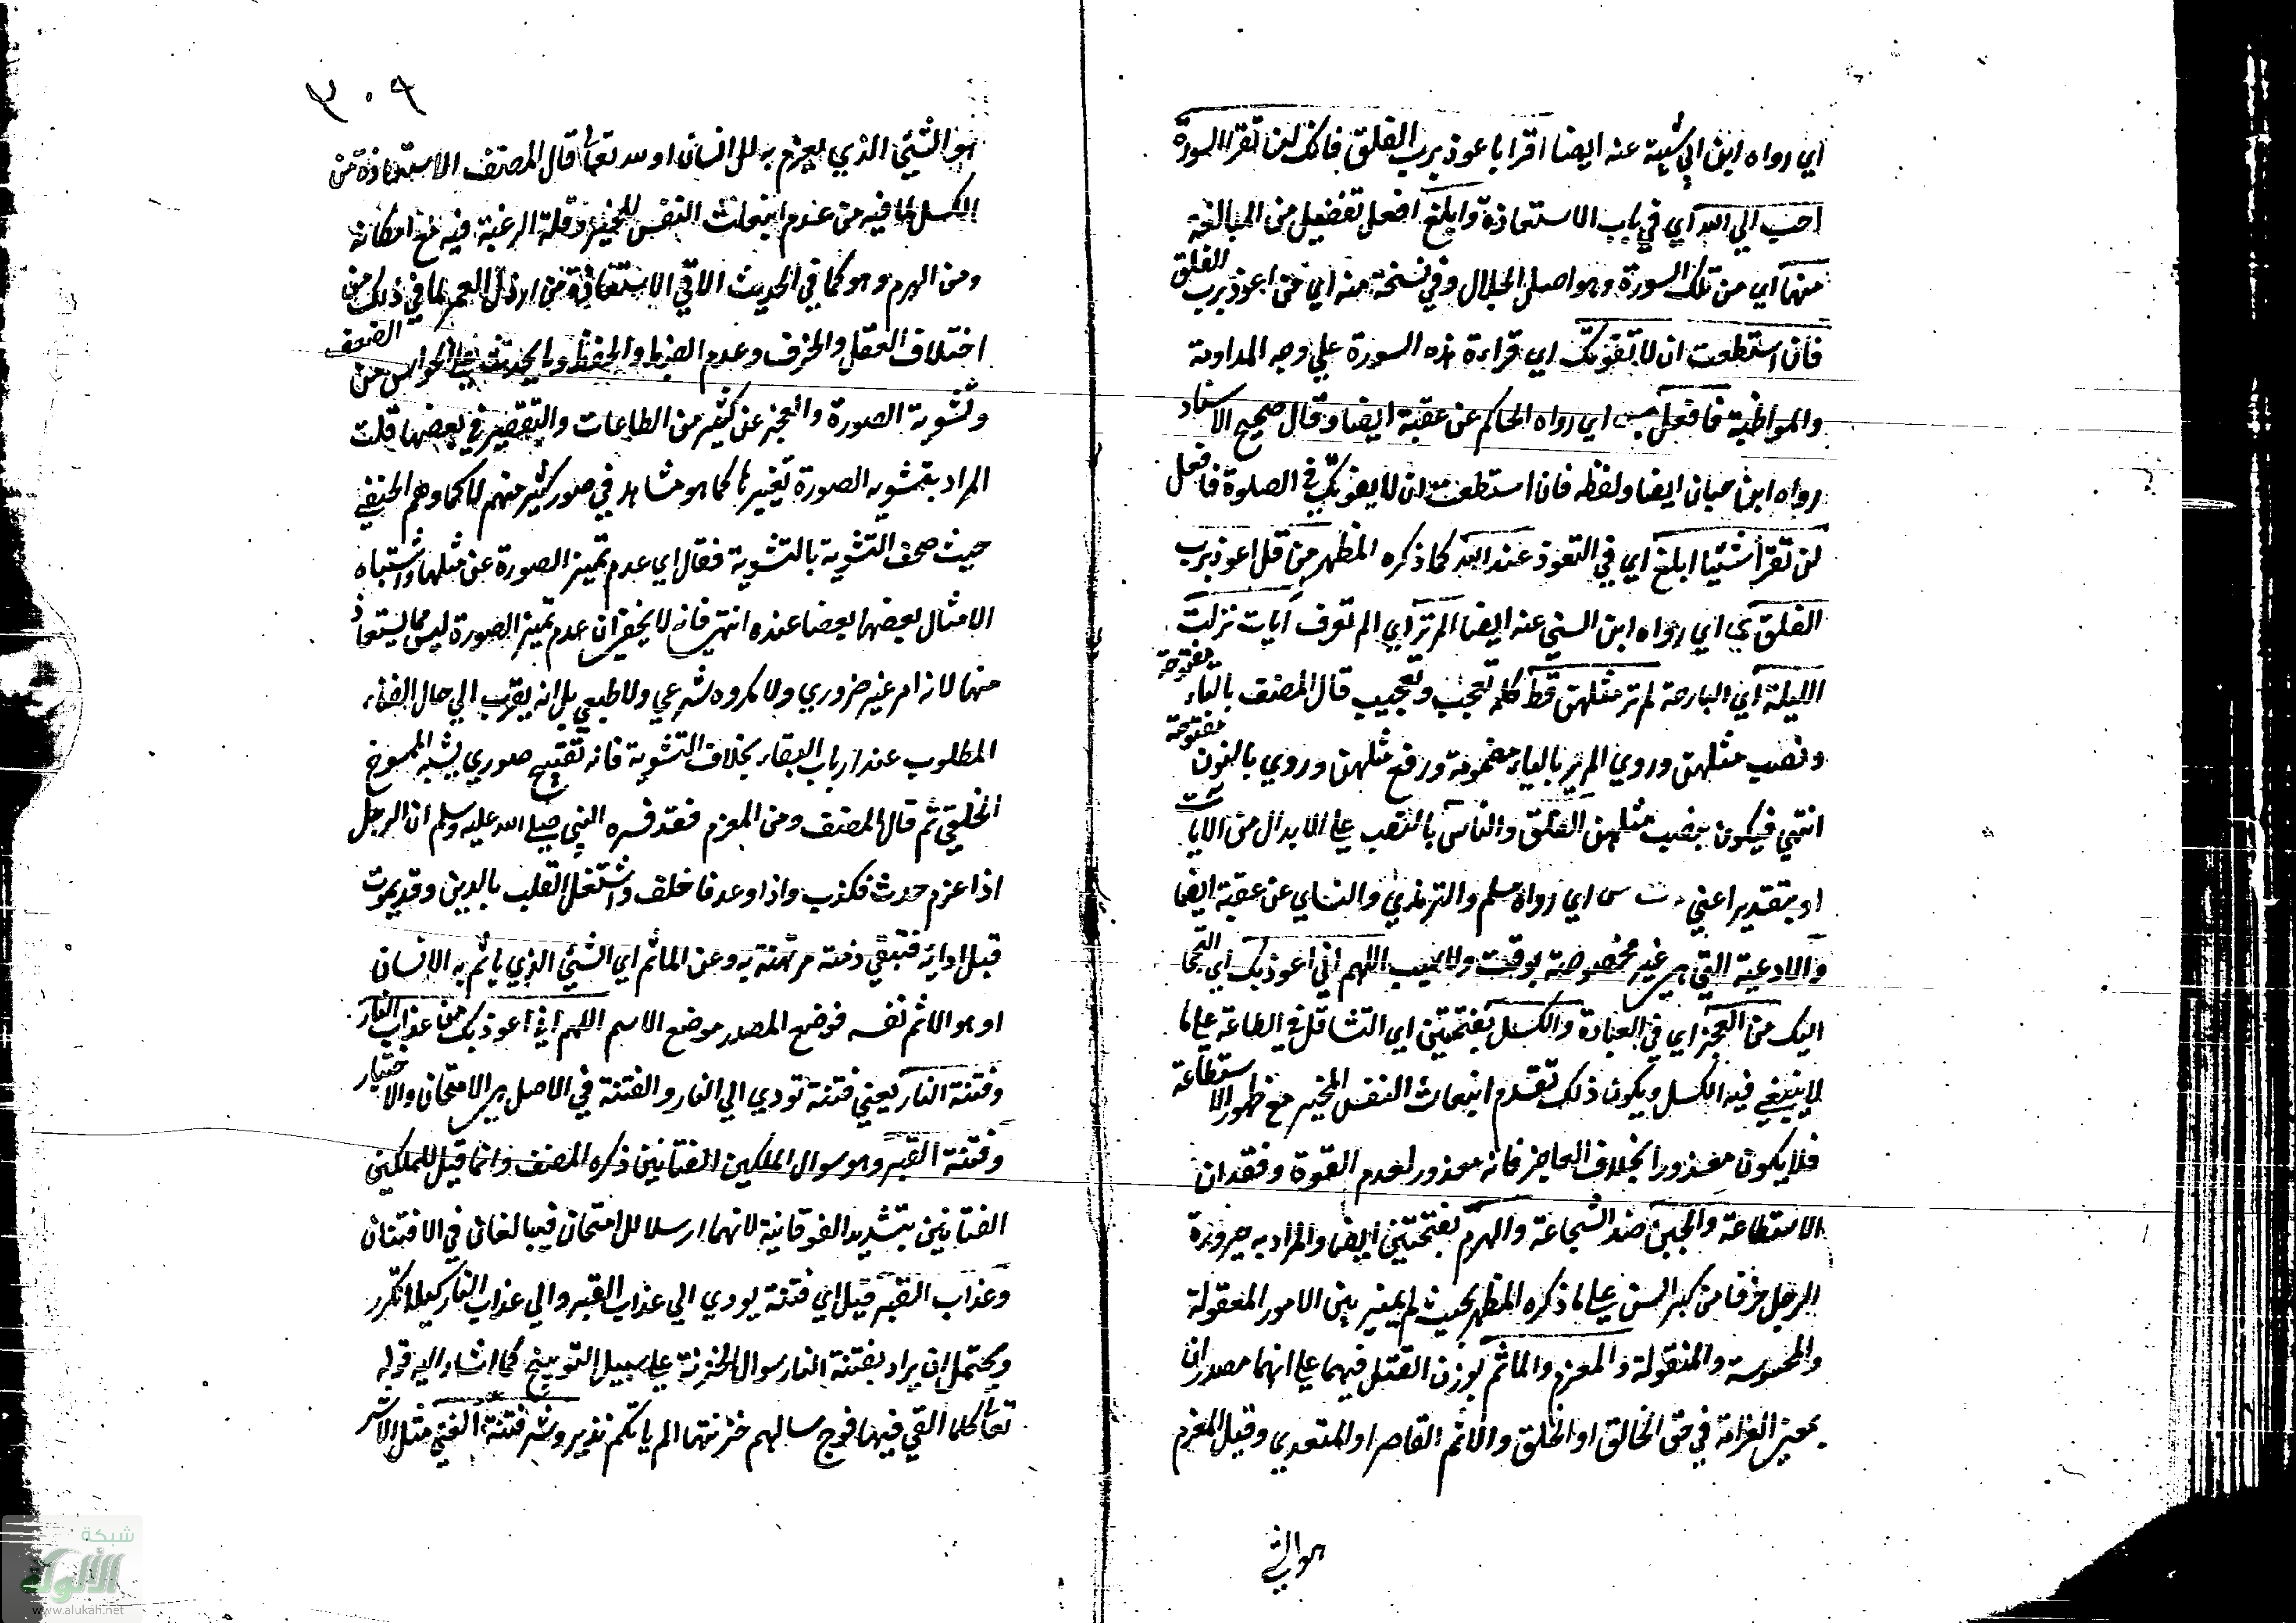 اي رواه ابن ابي شيبة عنه ايضا اقرا با عوذ برب الفلق فانك لن تقرا السورة
احب الي الله اي في باب الاستعاذة وابلغ افعل تفضيل من المبالغة
منها اي من تلك السورة وهو اصل الجلال وفي نسخة منه اي من اعوذ برب الفلق
فان استطعت ان لا تفوتك اي قراءة هذه السورة علي وجه المداومة
والمواظبة فافعل مس اي رواه الحاكم عن عقبة ايضا وقال صحيح الاسناد
رواه ابن حبان ايضا ولفظه فان استطعت ان لا يفوتك في الصلوة فافعل
لن تقرأ شيئا ابلغ اي في التعوذ عند الله كما ذكره المظهر من قل اعوذ برب
الفلق ي اي رواه ابن السني عنه ايضا الم تر اي الم تعرف آيات نزلت
الليلة اي البارحة لم تر مثلهن قط كلمة تعجب وتعجيب قال المصنف بالياء مفتوحة
ونصب مثلهن وروي لم ير بالياء مضمومة ورفع مثلهن وروي بالنون مفتوحة
انتهي فيكون بنصب مثلهن الفلق والناس بالنصب علي الابدال من الايات
او بتقدير اعني م ت س اي رواه مسلم والترمذي والنساي عن عقبة ايضا
والادعية التي هي غير مخصوصة بوقت ولا سبب اللهم اني اعوذ بك اي التجا
اليك من العجز اي في العبادة والكسل بفتحتين اي التثاقل في الطاعة علي ما
لا ينبغي فيه الكسل ويكون ذلك تقدم انبعاث النفس للخير مع ظهور الاستطاعة
فلا يكون معذورا بخلاف العاجز فانه معذور لعدم القوة وفقدان
الاستطاعة والجبن ضد الشجاعة والهرم بفتحتين ايضا والمراد به صيرورة
الرجل خرفا من كبر السن علي ما ذكره المظهر بحيث لم يميز بين الامور المعقولة
والمحسوسة والمنقولة والمغرم والماثم بوزن القتل فيهما علي انهما مصدران
بمعني الغرامة في حق الخالق او الخلق والاثم القاصر او المتعدي وقيل المغرم
هو الشي
٣٠٩
هو الشيئ الذي يغرم به للانسان او لله تعالي قال المصنف الاستعاذة من
الكسل لما فيه من عدم انبعاث النفس للخير وقلة الرغبة فيه مع امكانه
ومن الهرم وهو كما في الحديث الاتي الاستعاذة من ارذل العمر لما في ذلك من
اختلاف العقل والخرف وعدم الضبط والحفظ وما يحدث في الحواس من الضعف
وتشوية الصورة والعجز عن كثير من الطاعات والتقصير في بعضها قلت
المراد بتشويه الصورة تغييرها كما هو مشاهد في صور كثير منهم لا كما وهم الحنفي
حيث صحف التشوية بالتسوية فقال اي عدم تميز الصورة عن مثلها واشتباه
الامثال بعضها بعضا عنده انتهي فانه لا يخفي ان عدم تميز الصورة ليس مما يستعاذ
منها لانه امر غير ضروري ولا مكروه شرعي ولا طبعي بل انه يقرب الي حال الفناء
المطلوب عند ارباب البقاء بخلاف التشوية فانه تقبيح صوري يشبه المسوخ
الخلقي ثم قال المصنف ومن المغرم فقد فسره النبي صلي الله عليه وسلم ان الرجل
اذا غرم حدث فكذب واذا وعد فاخلف واشتغل القلب بالدين وقد يموت
قبل ادايه فتبقي ذمته مرتهنة به وعن الماثم اي الشيئ الذي ياثم به الانسان
او هو الاثم نفسه فوضع المصدر موضع الاسم اللهم اني اعوذ بك من عذاب النار
وفتنة النار يعني فتنة تودي الي النار والفتنة في الاصل هي الامتحان والاختبار
وفتنة القبر وهو سوال الملكين الفتانين ذكره المصنف وانما قيل للملكين
الفتانين بتشديد الفوقانية لانهما ارسلا للامتحان فيبالغان في الافتتان
وعذاب القبر قيل اي فتنة يودي الي عذاب القبر والي عذاب النار كيلا تكرر
ويحتمل ان يراد بفتنة النار سوال الخزنة علي سبيل التوبيخ كما اشار اليه قوله
تعالي كلما القي فيها فوج سالهم خزنتها الم ياتكم نذير وشر فتنة الغني مثل الاشر
شبكة
الألوكة
www.alukah.net